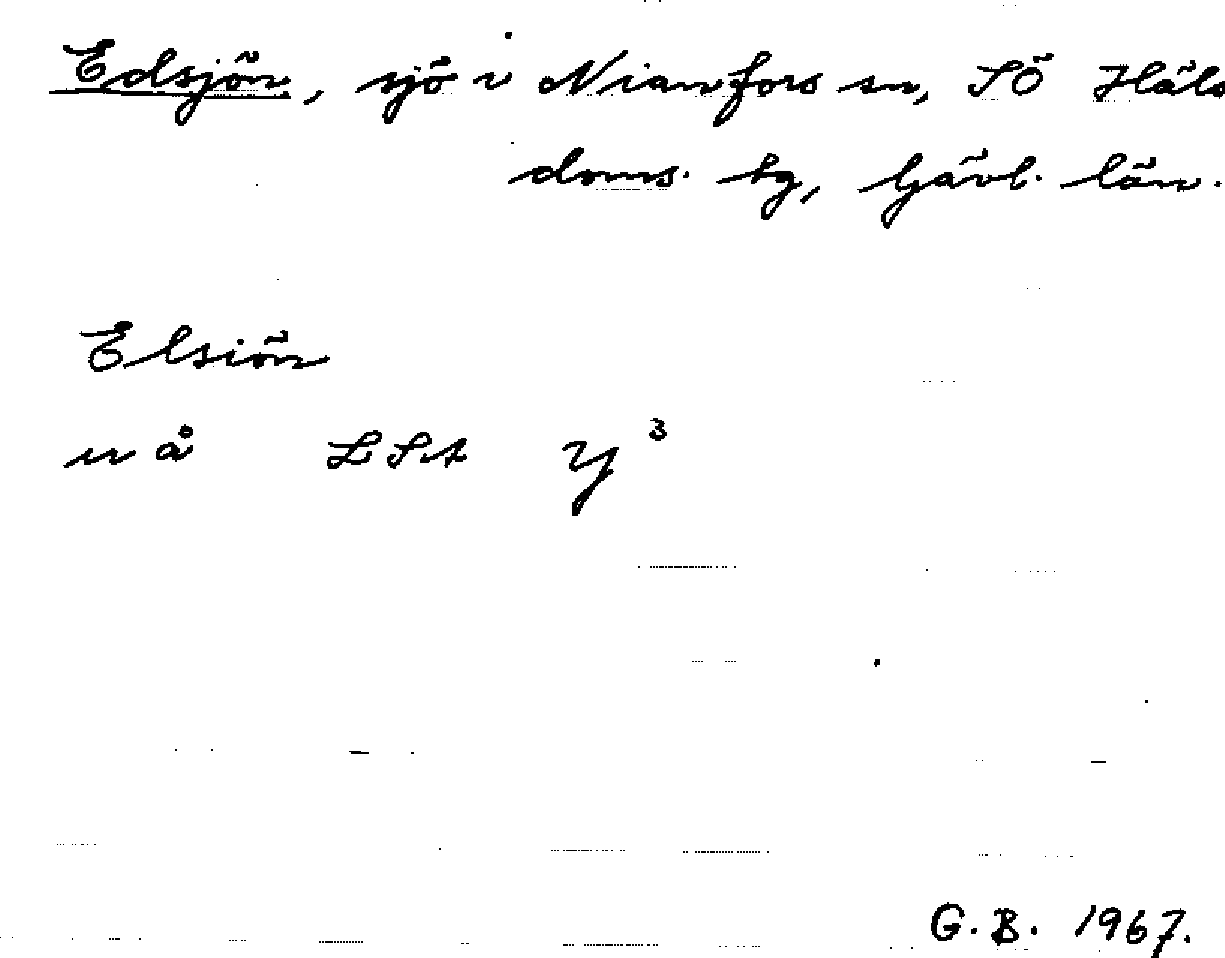 Edsjön, sjö i Nianfors sn, SÖ Häls
doms. tg, Gävl. län.
Elsiön
u å LSA Y³
G.B. 1967.